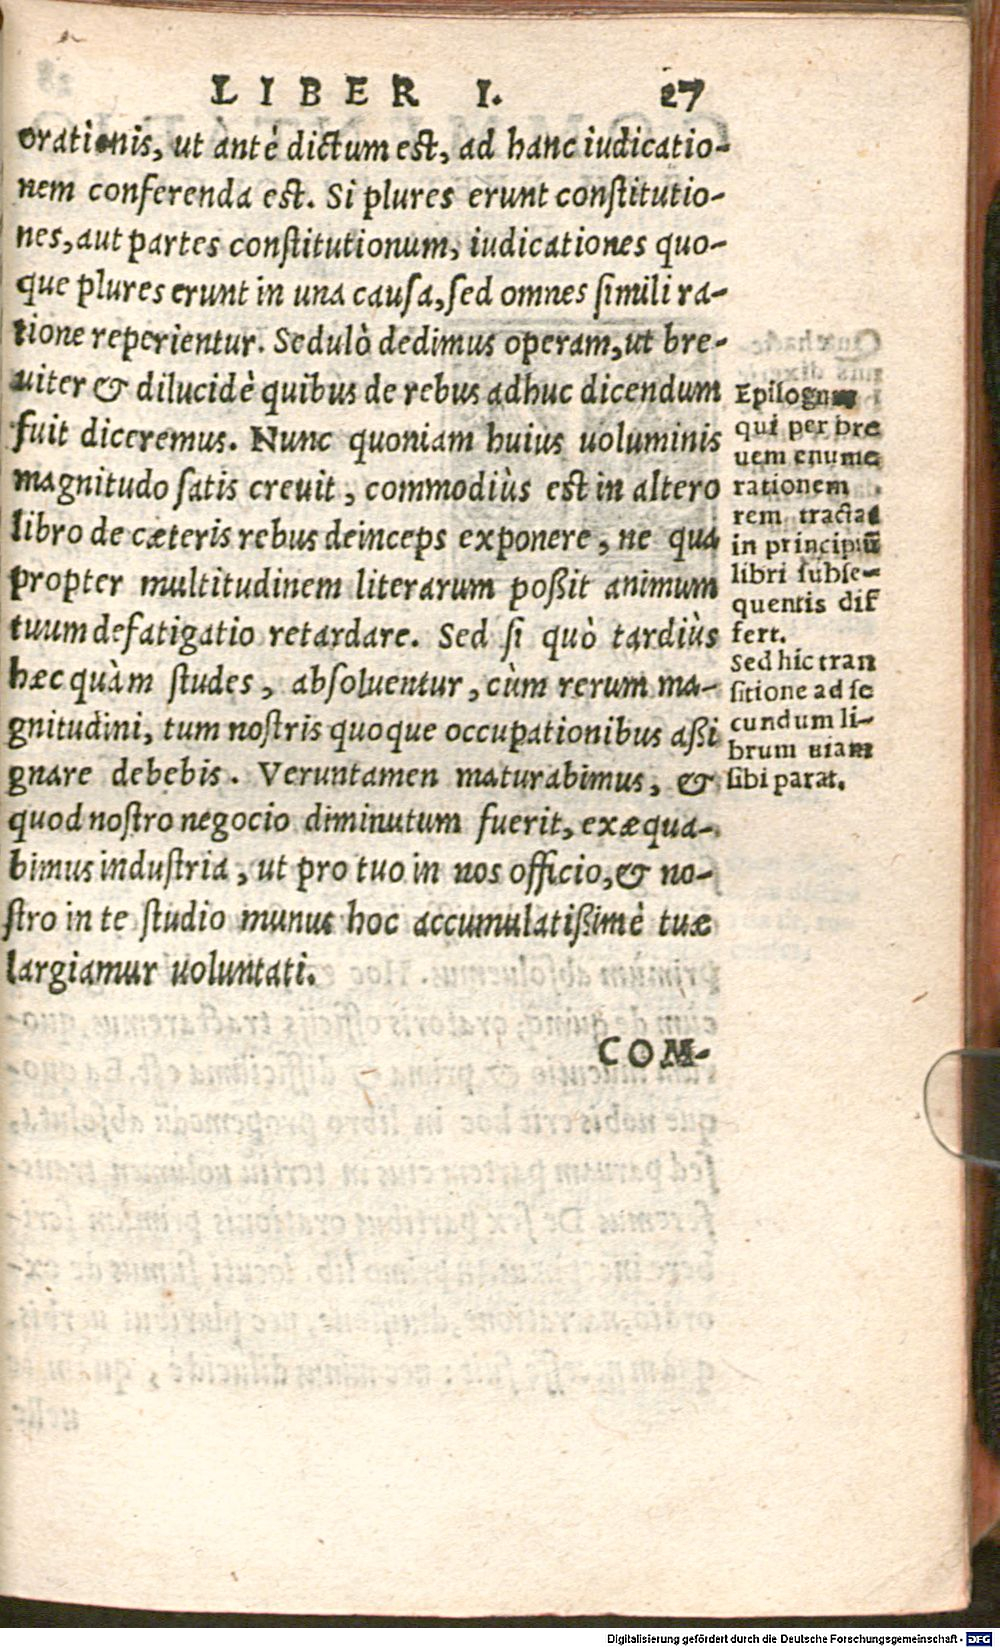 LIBER I. 27
orationis, ut antè dictum est, ad hanc iudicatio-
nem conferenda est. Si plures erunt constitutio-
nes, aut partes constitutionum, iudicationes quo-
que plures erunt in una causa, sed omnes simili ra-
tione reperientur. Sedulò dedimus operam, ut bre-
uiter & dilucidè quibus de rebus adhuc dicendum
fuit diceremus. Nunc quoniam huius uoluminis
magnitudo satis creuit, commodiùs est in altero
libro de cæteris rebus deinceps exponere, ne qua
propter multitudinem literarum poßit animum
tuum defatigatio retardare. Sed si quò tardiùs
hæc quàm studes, absoluentur, cùm rerum ma-
gnitudini, tum nostris quoque occupationibus aßi
gnare debebis. Veruntamen maturabimus, &
quod nostro negocio diminutum fuerit, exæqua-
bimus industria, ut pro tuo in nos officio, & no-
stro in te studio munus hoc accumulatißimè tuæ
largiamur uoluntati.
COM-
Epilogum
qui per bre
uem enume
rationem
rem tractat
in principiũ
libri subse-
quentis dif
fert.
Sed hic tran
sitione ad se
cundum li-
brum uiam
sibi parat.
Digitalisierung gefördert durch die Deutsche Forschungsgemeinschaft - DFG